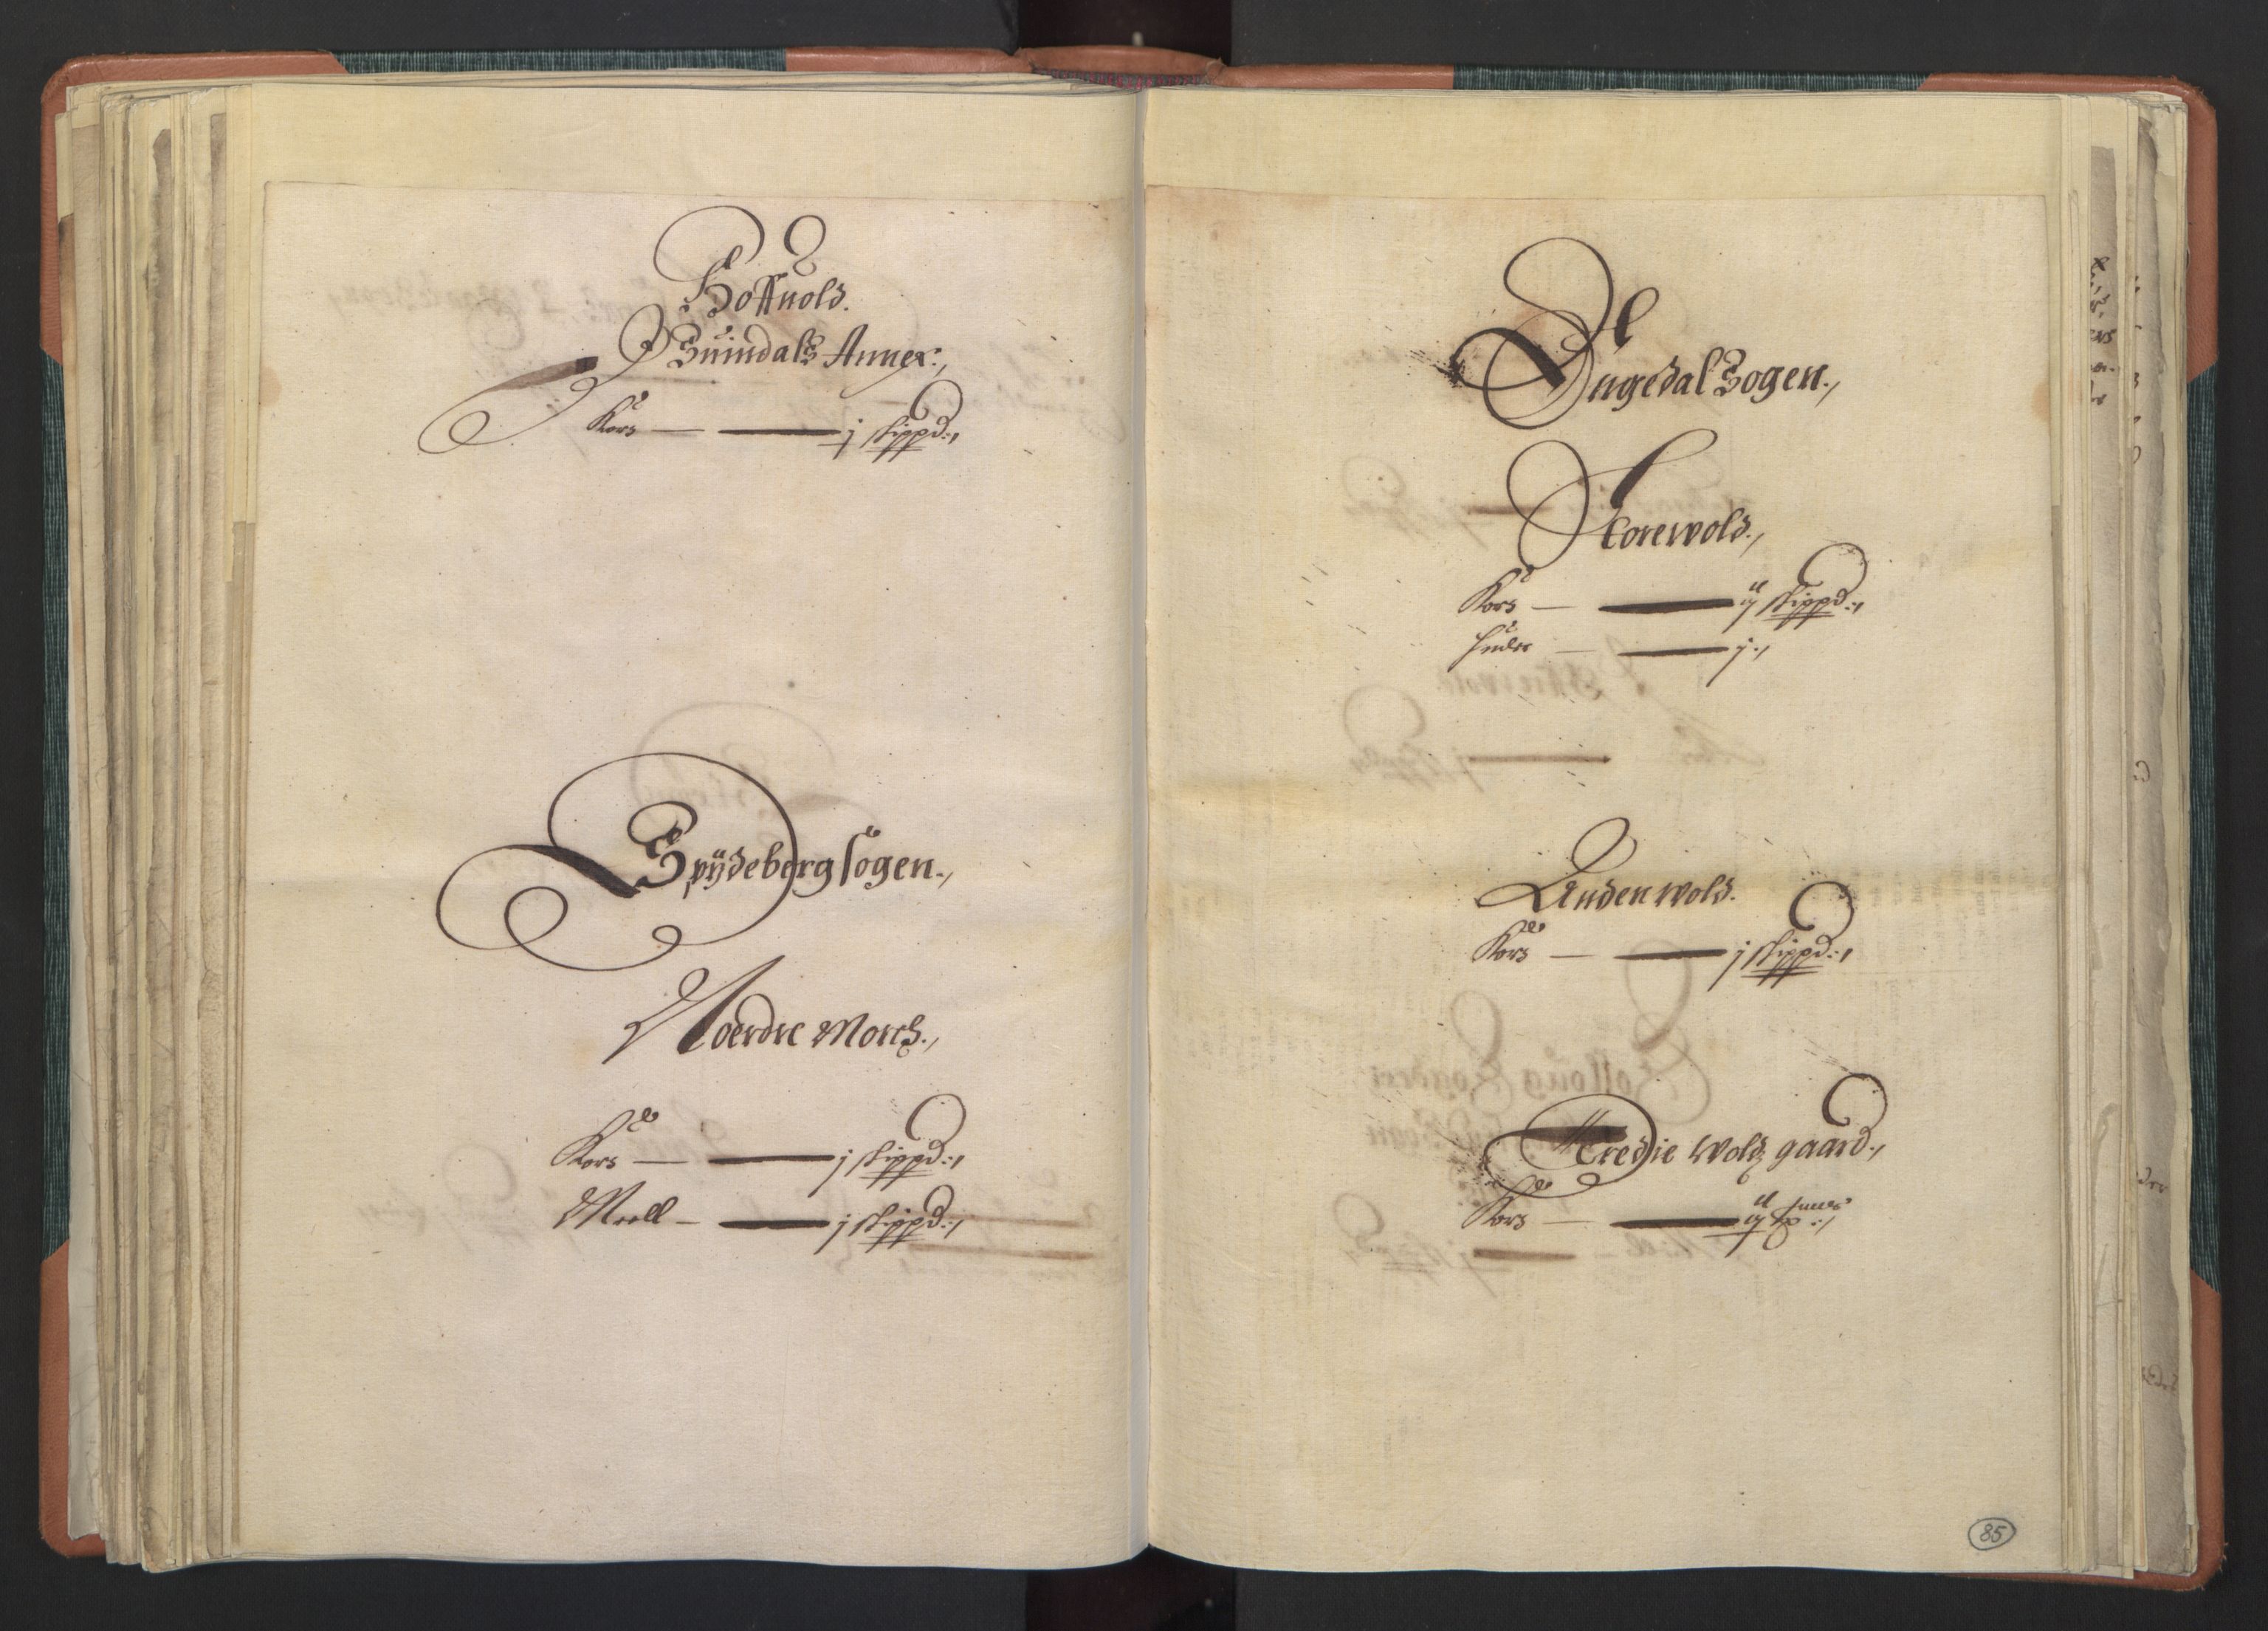 Hoffuold.
Suindals Annex:,
Kors — — j skippd:,
Spÿdeberg sogen.,
Noerdre Morch.,
Kors — — j skippd:,
Meell — — j skippd:,
Ingedal Sogen.,
Storewold.,
Kors — — ij skippd:,
Huder — — j.,
Anden wold.
Kors — — j skippd:,
Tredie Woldz gaard.,
Kors — — ij
85